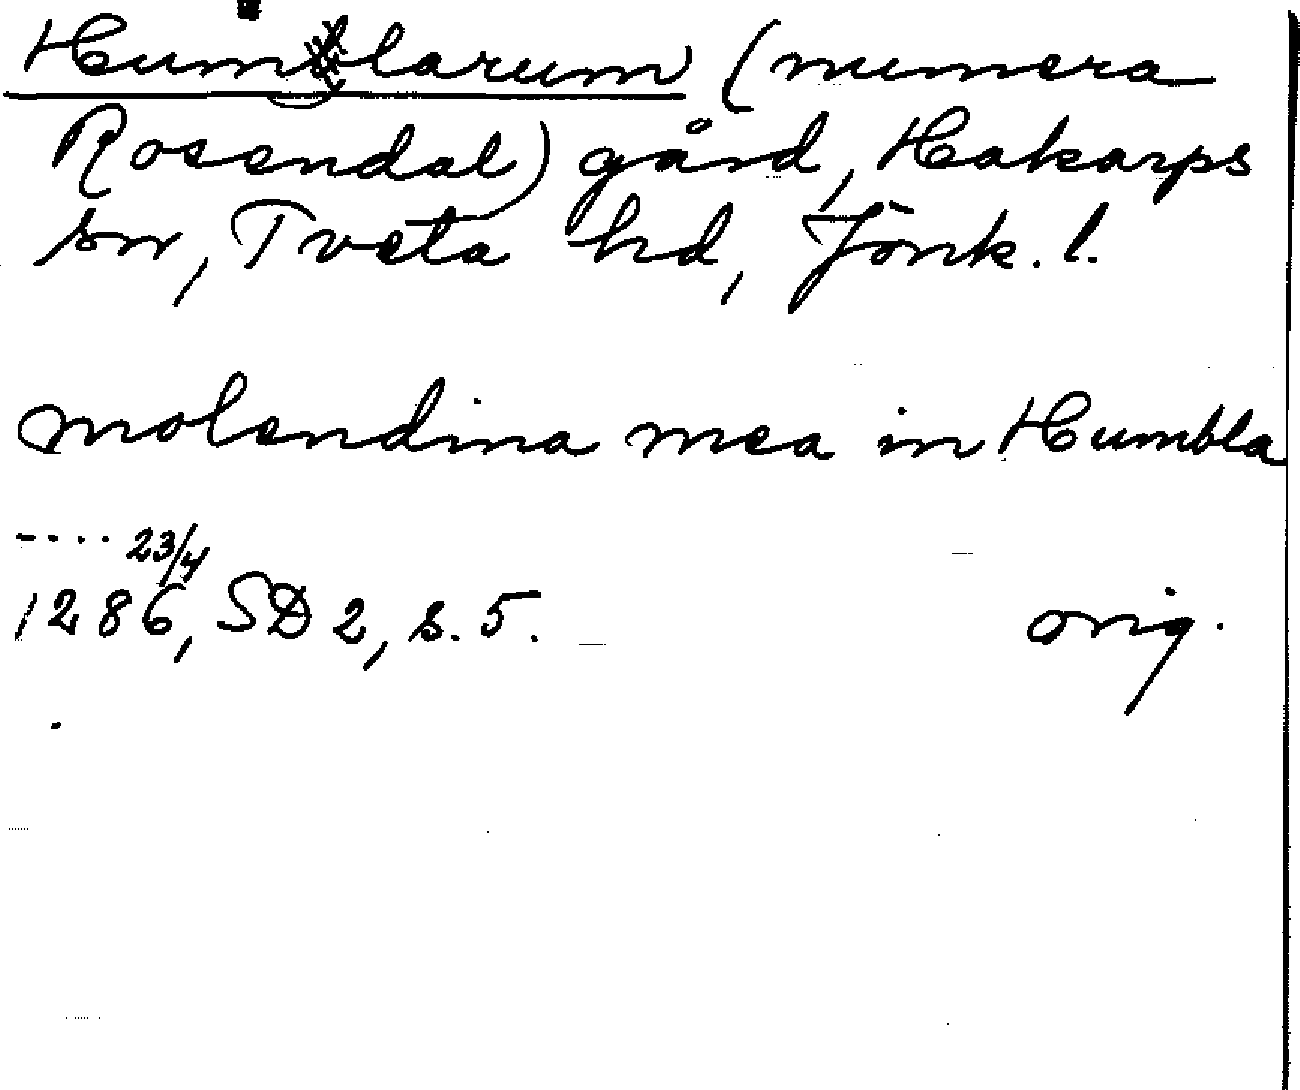 Humlarum (numera
Rosendal) gård, Hakarps
sn, Tveta hd, Jönk. l.
molendina mea in Humbla
---- 23/4
1286, SD 2, s. 5. orig.